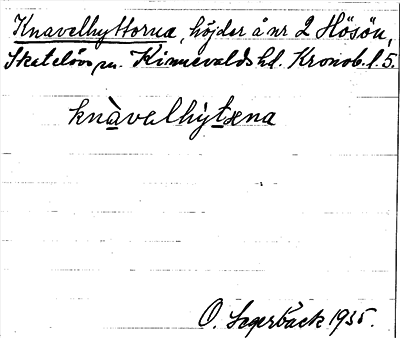 Knavelhyttorna, höjder å nr 2 Hösön,
Skatelövs sn. Kinnevalds hd. Kronob. l. 5.
knàvalhy̆tæna
O. Segerbäck 1935.